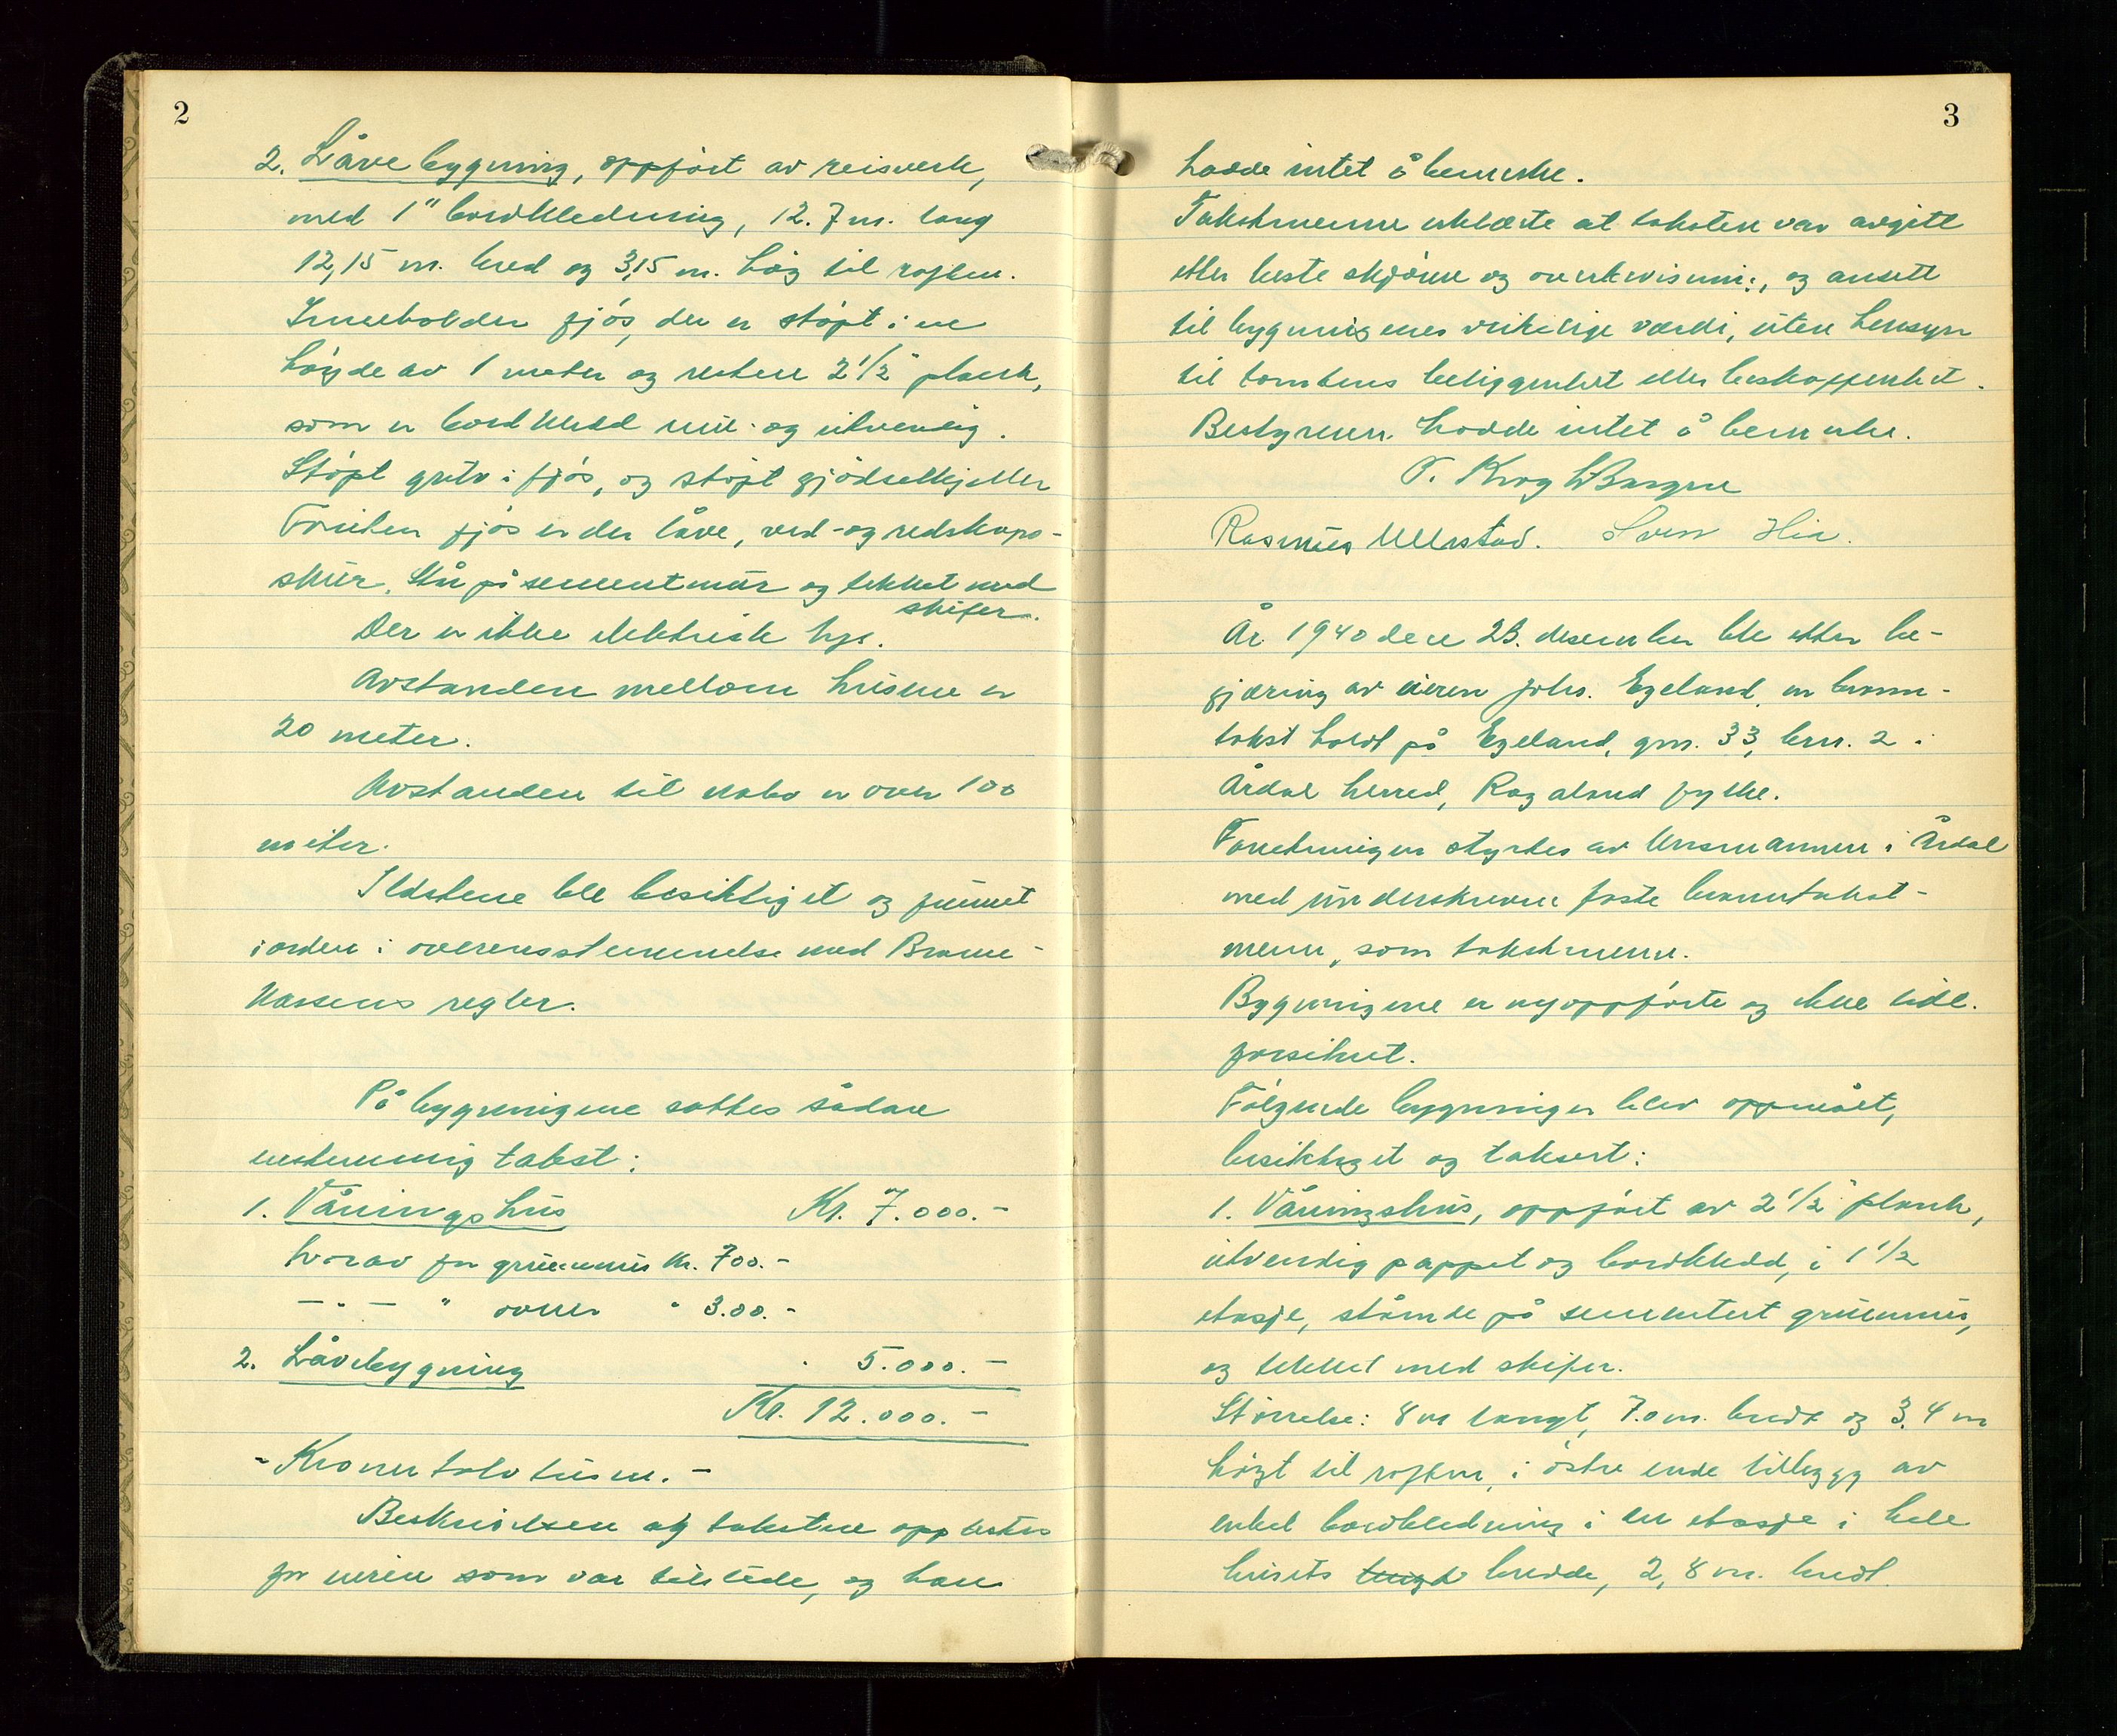 2
2. Låvebygning, oppført av reisverk,
med 1" bordkledning, 12.7 m. lang
12,15 m. bred og 3,15 m. høg til raften.
Inneholder fjøs, der er støpt i en
høyde av 1 meter og resten 2 1/2" plank,
som er bordkledd inn- og utvendig.
Støpt golv i fjøs, og støpt gjødselkjeller
Foruten fjøs er der låve, ved- og redskaps-
skur. Står på sementmur og tekket med
skifer.
Der er ikke elektrisk lys.
Avstanden mellom husene er
20 meter.
Avstanden til nabo er over 100
meter.
Ildstene ble besiktiget og funnet
i orden i overensstemmelse med Brann-
kassens regler.
På bygningene sattes sådan
enstemmig takst:
1. Våningshus Kr. 7.000.-
hvorav for grunnmur kr. 700.-
-"- " ovner " 3.00.-
2. Låvebygning " 5.000.-
Kr. 12.000.-
- Kroner tolv tusen. -
Beskrivelsen og taksten opplestes
for eieren som var tilstede, og han
3
hadde intet å bemerke.
Takstmennene erklærte at taksten var avgitt
etter beste skjønn og overbevisning, og ansett
til bygningenes virkelige værdi, uten hensyn
til tomtens beliggenhet eller beskaffenhet.
Bestyreren hadde intet å bemerke.
T. Krog
Rasmus Ullestad. Sven Hia.
År 1940 den 23. desember ble etter be-
gjæring av eieren Johs. Egeland, en brann-
takst holdt på Egeland, gnr. 33, bnr. 2 i
Årdal herred, Rogaland fylke.
Forretningen styrtes av lensmannen i Årdal
med underskrevne faste branntakst-
menn, som takstmenn.
Bygningene er nyoppførte og ikke tidl.
forsikret.
Følgende bygninger blev oppmålt,
besiktiget og taksert:
1. Våningshus, oppført av 2 1/2" plank,
utvendig pappet og bordkledd, i 1 1/2
etasje, stående på sementert grunnmur,
og tekket med skifer.
Størrelse: 8 m langt, 7.0 m. bredt og 3.4 m
høgt til raften, i østre ende tillegg av
enkel bordkledning i en etasje i hele
husets lengd bredde, 2,8 m. bredt.